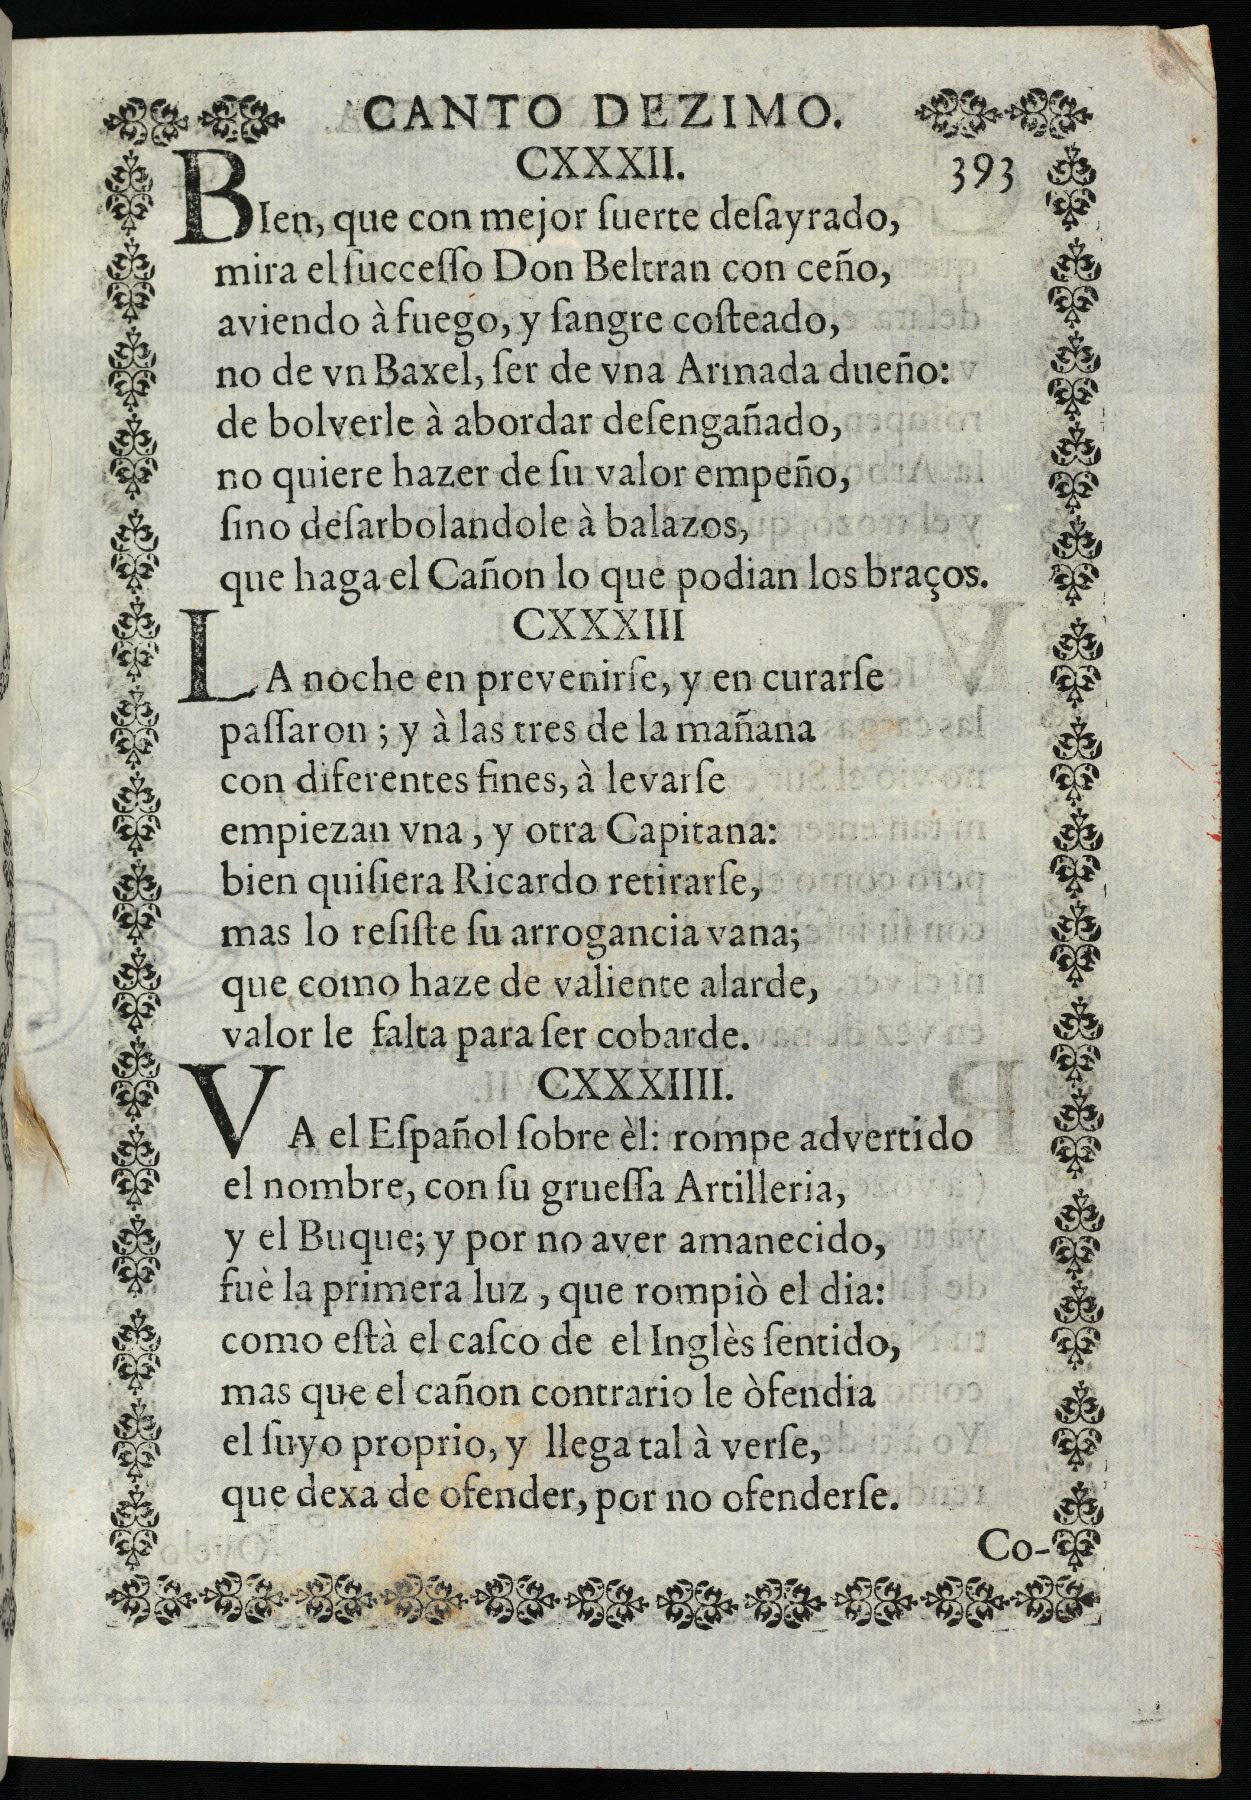 CANTO DEZIMO.
393
CXXXII.
BIen, que con mejor ſuerte deſayrado,
mira el ſucceſſo Don Beltran con ceño,
aviendo à fuego, y ſangre coſteado,
no de vn Baxel, ſer de vna Armada dueño:
de bolverle à abordar deſengañado,
no quiere hazer de ſu valor empeño,
ſino deſarbolandole à balazos,
que haga el Cañon lo que podian los braços.
CXXXIII
LA noche en prevenirſe, y en curarſe
paſſaron; y à las tres de la mañana
con diferentes fines, à levarſe
empiezan vna, y otra Capitana:
bien quiſiera Ricardo retirarſe,
mas lo reſiſte ſu arrogancia vana;
que como haze de valiente alarde,
valor le falta para ſer cobarde.
CXXXIIII.
VA el Eſpañol ſobre èl: rompe advertido
el nombre, con ſu grueſſa Artilleria,
y el Buque; y por no aver amanecido,
fuè la primera luz, que rompiò el dia:
como eſtà el caſco de el Inglès ſentido,
mas que el cañon contrario le òfendia
el ſuyo proprio, y llega tal à verſe,
que dexa de ofender, por no ofenderſe.
Co-